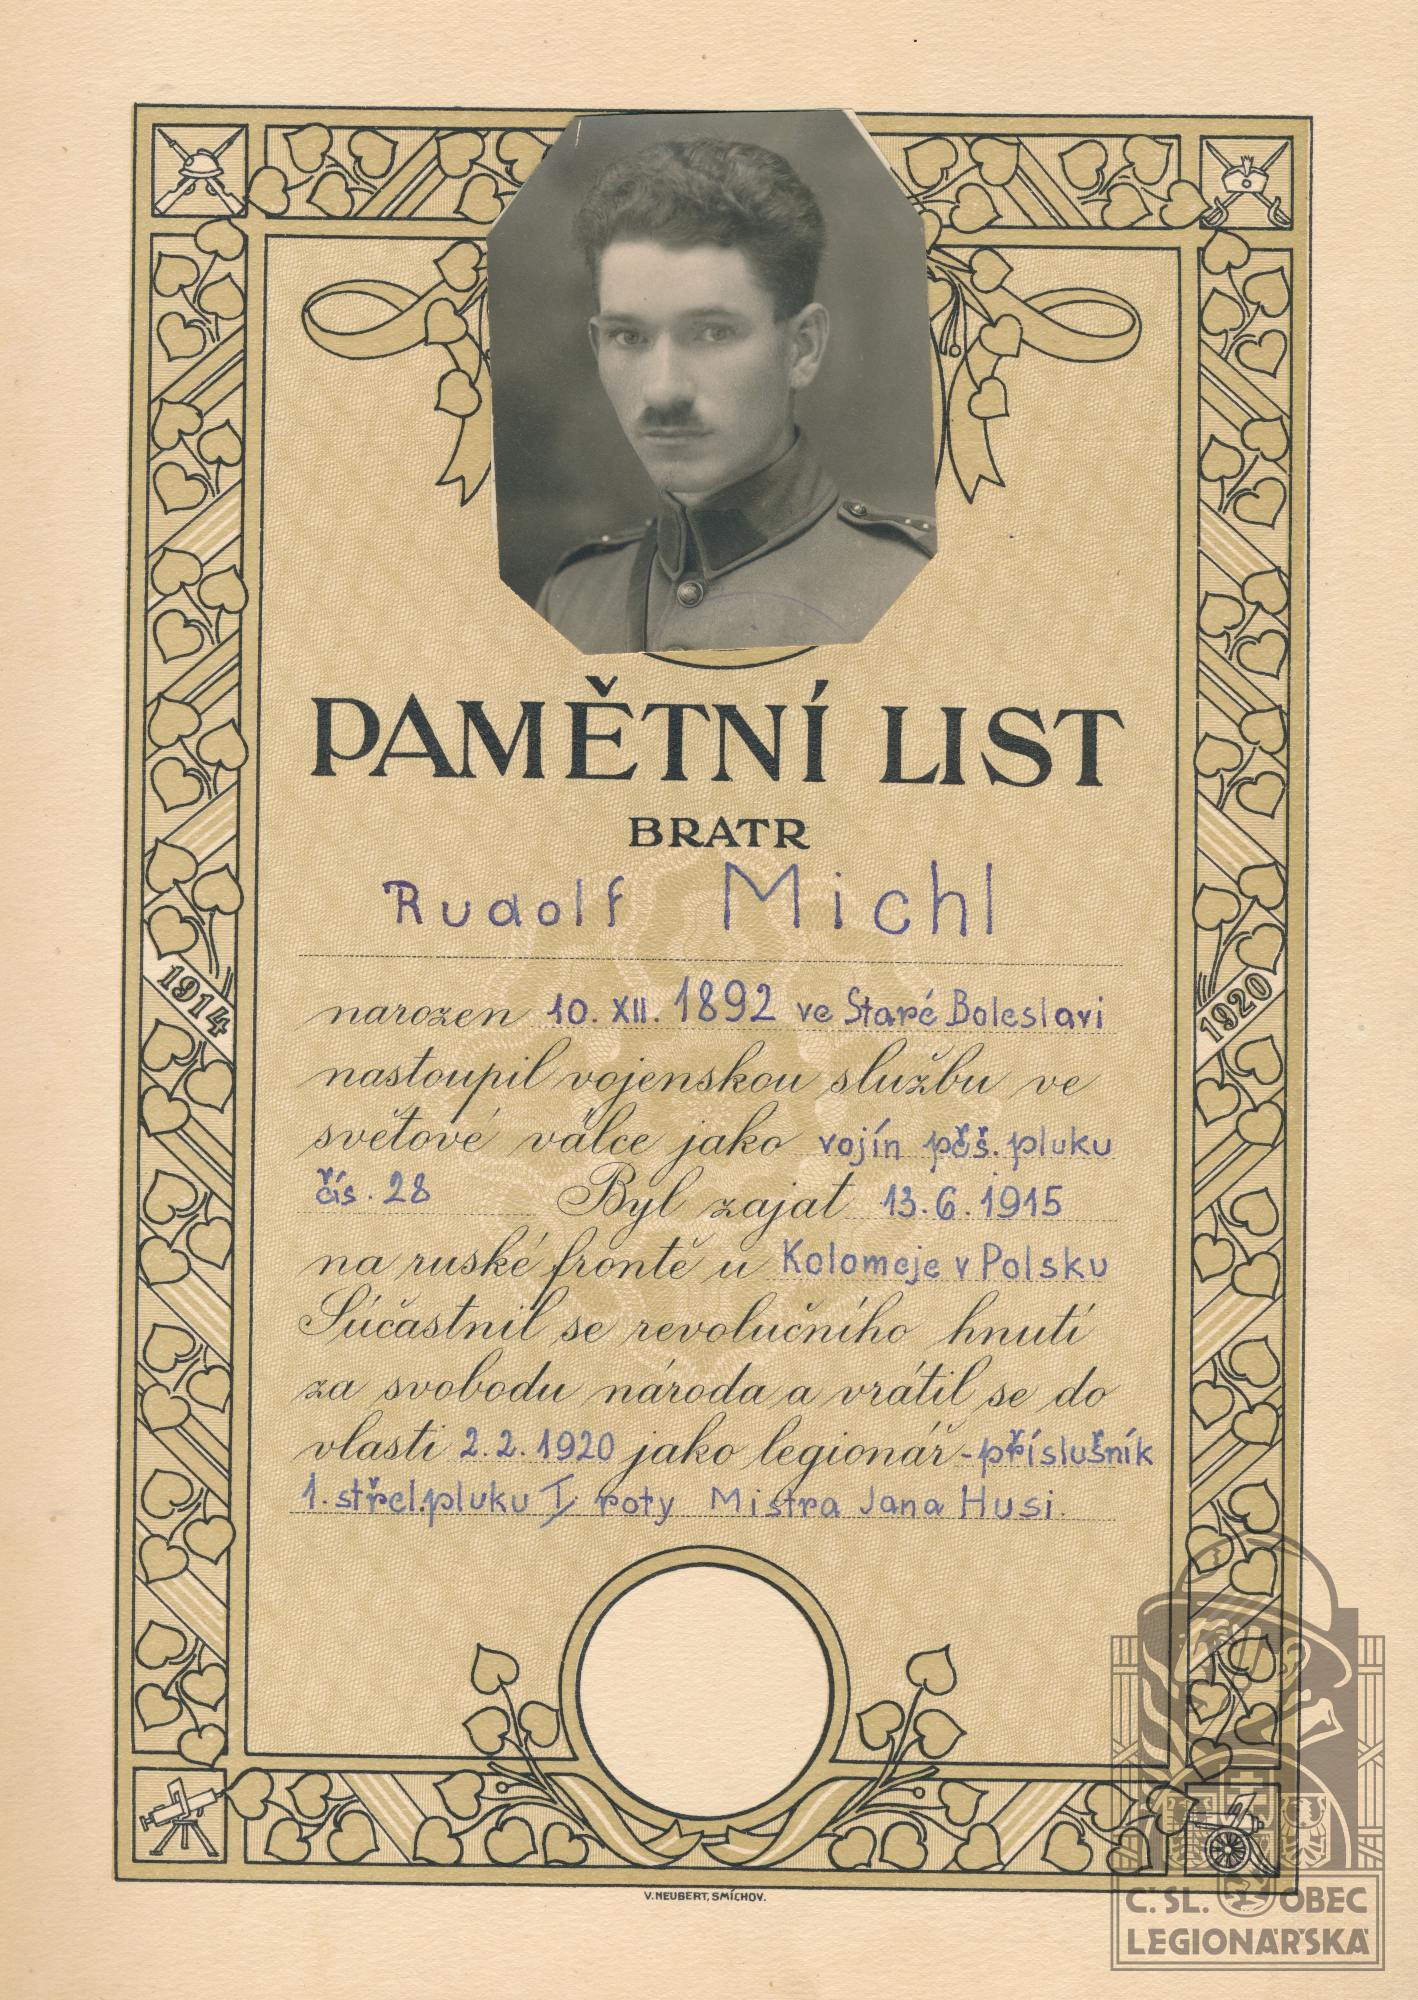 PAMĚTNÍ LIST
BRATR
Rudolf Michl
narozen 10. XII. 1892 ve Staré Boleslavi
nastoupil vojenskou službu ve
světové válce jako vojín pěš. pluku
čís. 28 Byl zajat 13.6.1915
na ruské frontě u Kolomeje v Polsku
Súčastnil se revolučního hnutí
za svobodu národa a vrátil se do
vlasti 2.2.1920 jako legionář - příslušník
1. střel. pluku I. roty Mistra Jana Husi.
1914
1920
V. NEUBERT, SMÍCHOV.
Č. SL. OBEC
LEGIONÁŘSKÁ